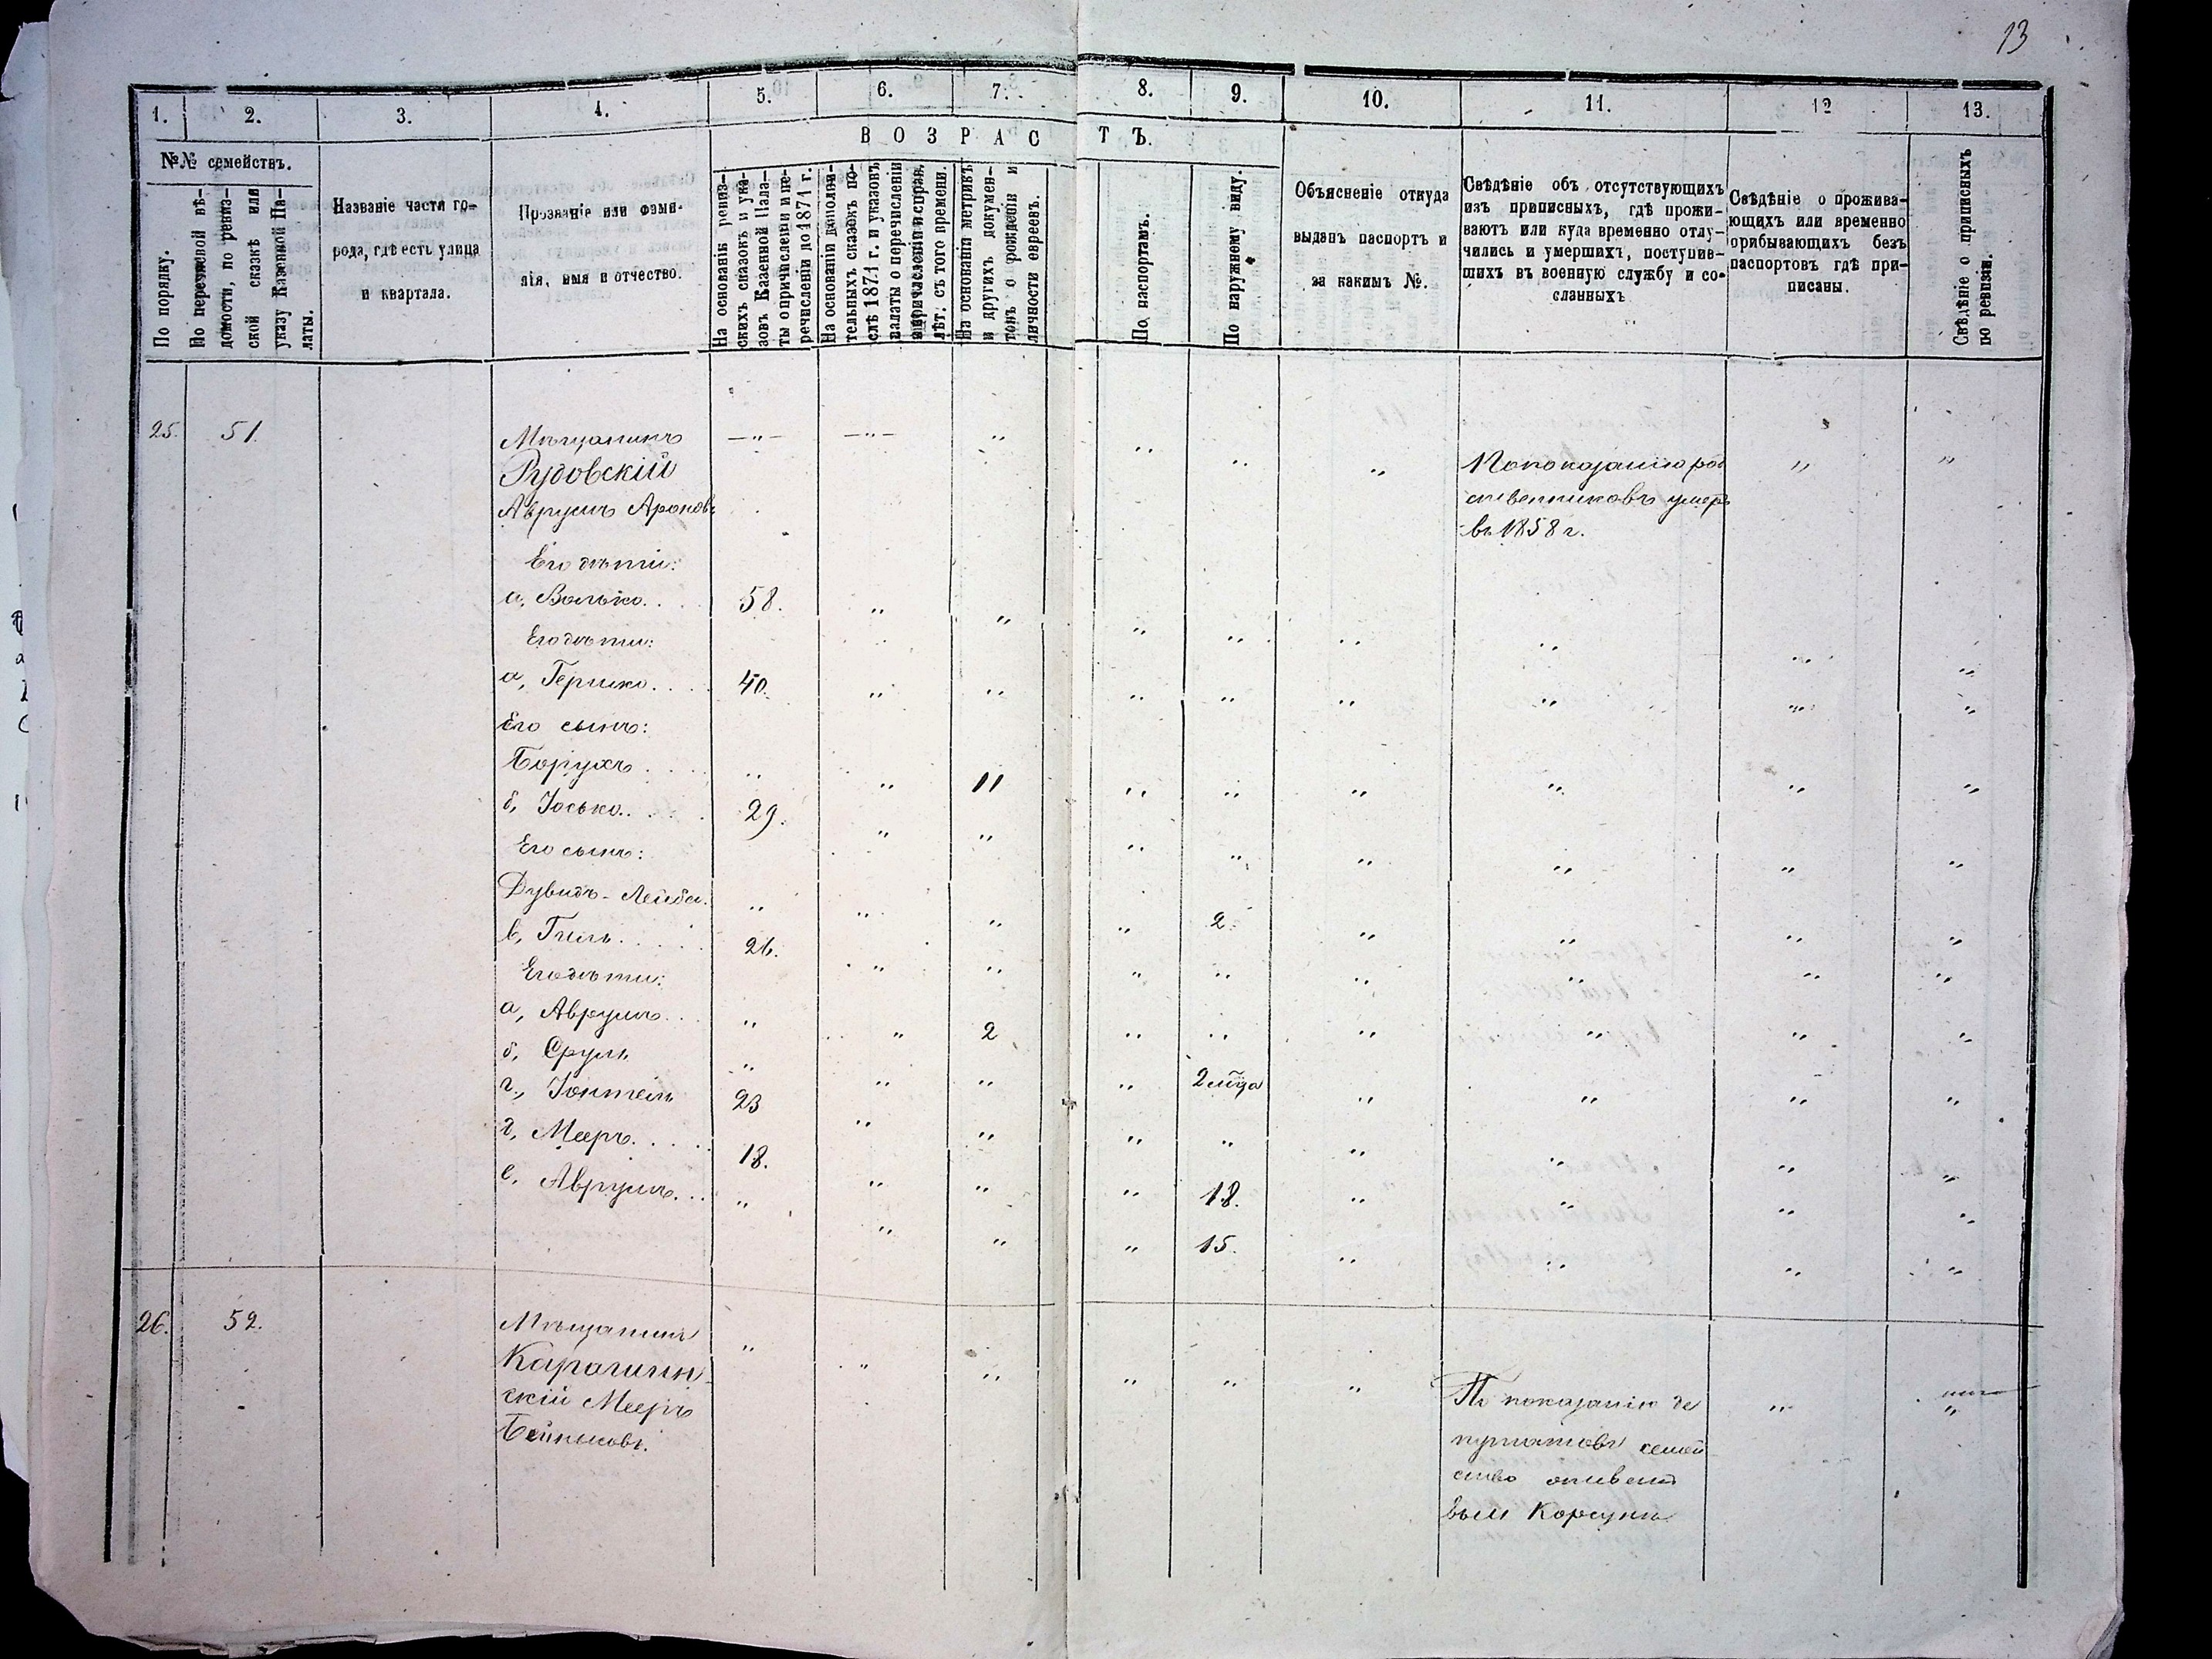 13
1. 2. 3. 4. 5. 6. 7. 8. 9. 10. 11. 12 13.
№№ семействъ.
ВОЗРАСТЪ.
По порядку.
По переписной вѣ-
домости, по ревиз-
ской сказкѣ или
указу Казенной Па-
латы.
Названіе части го-
рода, гдѣ есть улица
и квартала.
Прозваніе или фами-
лія, имя и отчество.
На основаніи ревиз-
скихъ сказокъ и ука-
зовъ Казенной Пала-
ты о причисленіи и пе-
речисленіи до 1871 г.
На основаніи дополни-
тельныхъ сказокъ по-
слѣ 1871 г. и указовъ
палаты о перечисленіи
и причисленіи и справ.
лѣт: съ того времени.
На основаніи метрикъ
и другихъ докумен-
товъ о рожденіи и
личности евреевъ.
По паспортамъ.
По наружному виду.
Объясненіе откуда
выданъ паспортъ и
за какимъ №.
Свѣдѣніе объ отсутствующихъ
изъ приписныхъ, гдѣ прожи-
ваютъ или куда временно отлу-
чились и умершихъ, поступив-
шихъ въ военную службу и со-
сланныхъ
Свѣдѣніе о прожива-
ющихъ или временно
прибывающихъ безъ
паспортовъ гдѣ при-
писаны.
Свѣдѣніе о приписныхъ
по ревизіи.
25. 51. Мѣщанинъ —"— —"— " " " " " "
Рудовскій
Аврумъ Аронов:
По показанію род
ственниковъ умеръ
въ 1858 г.
Его дѣти:
а, Волько. . . 58. " " " " " " " "
Его дѣти:
а, Гершко. . . . 40. " " " " " " " "
Его сынъ:
Борухъ . . . . " " 11 " " " " " "
б, Іосько. . . . 29. " " " " " " " "
Его сынъ:
Дувидъ-Лейба. " " " " 2. " " " "
в, Гиль. . . . . 26. " " " " " " " "
Его дѣти:
а, Аврумъ. . . " " 2 " " " " " "
б, Сруль " " " " 2 мѣсца " " " "
г, Іонтель 23 " " " " " " " "
д, Мееръ. . . . 18. " " " 18. " " " "
е, Аврумъ. . . " " " " 15. " " " "
26. 52. Мѣщанинъ " " " " " " " "
скій Мееръ
По показанію де
путатовъ семей
ство
Корсунь